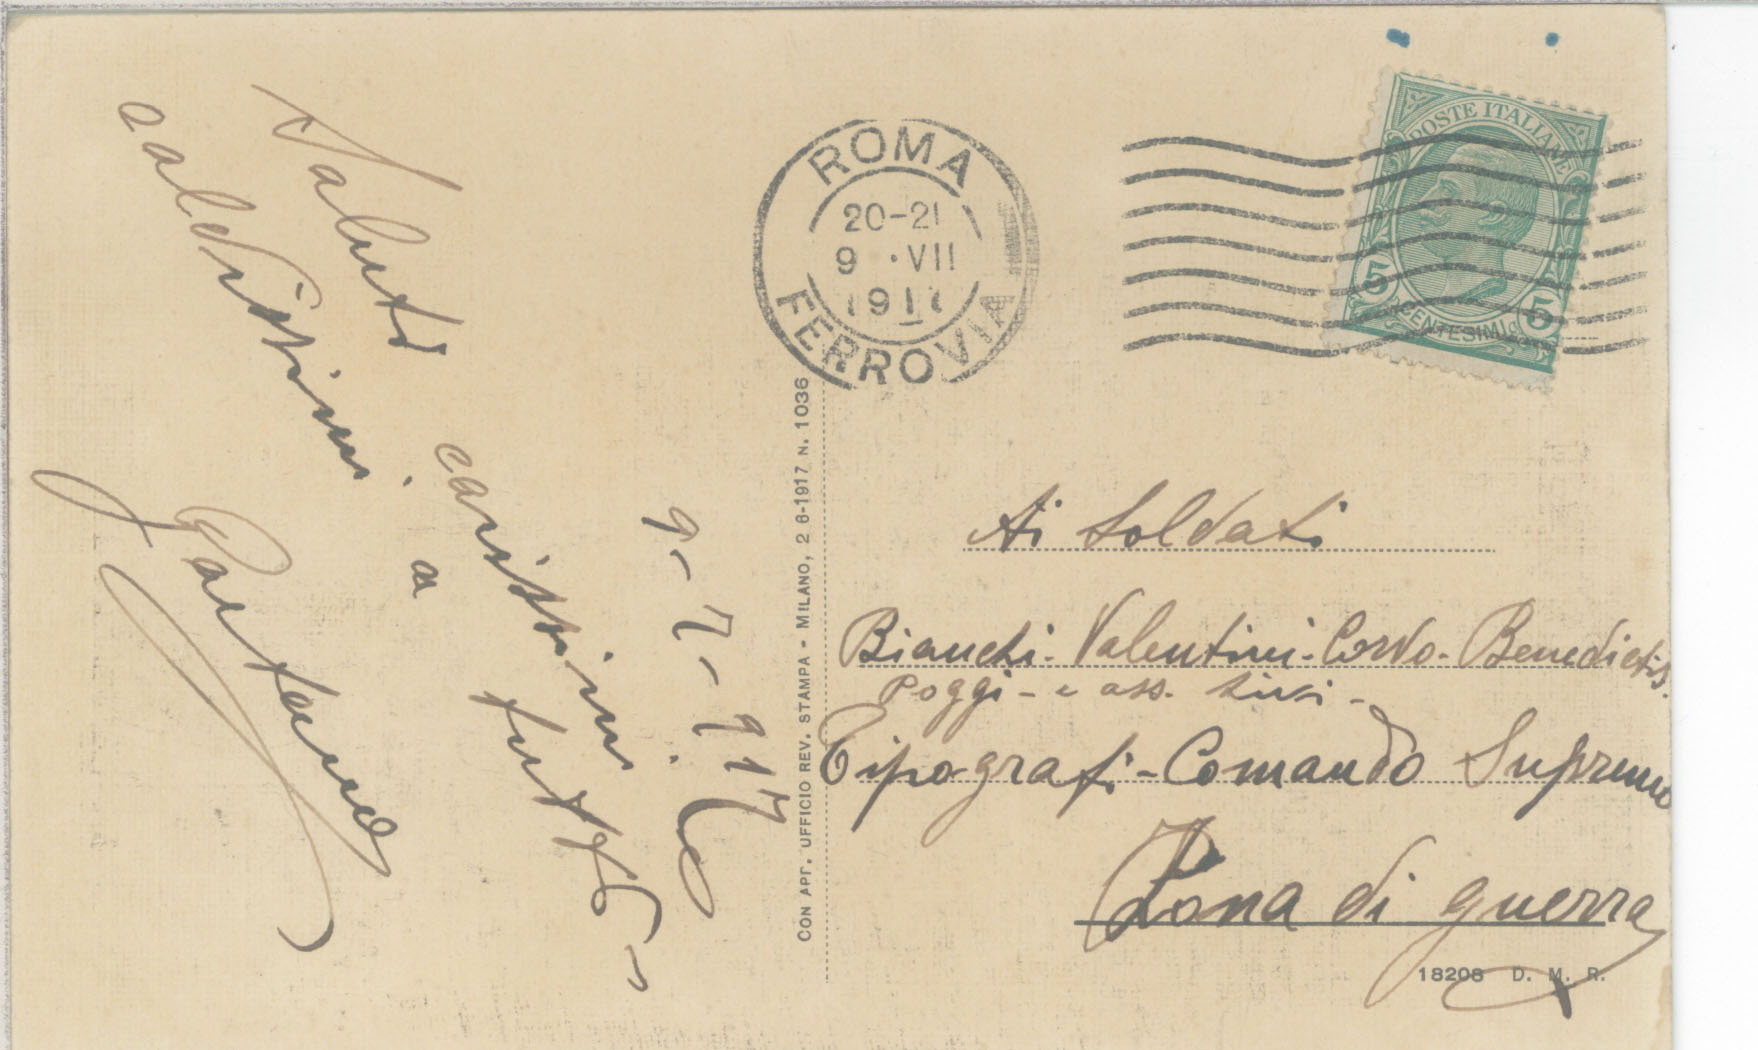 Saluti carissimi a tutti
a aldissimi.
9-7-917
CON APP. UFFICIO REV. STAMPA - MILANO, 2 6-1917 N. 1036
ROMA
20-21
9 ·VII
1917
FERROVIA
POSTE ITALIANE
5 5
CENTESIMI
Ai Soldati
Bianchi - Valentini - Corvo - Benedictis.
Poggi - e ass.
Tipografi - Comando Supremo
Zona di guerra
18208 D. M. R.